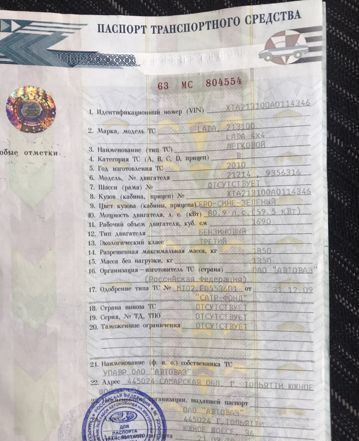 ПАСПОРТ ТРАНСПОРТНОГО СРЕДСТВА
63 МС 804554
обые отметки
1. Идентификационный номер (VIN) XTA213100A0114346
2. Марка, модель ТС LADA, 213100
LADA 4X4
3. Наименование (тип ТС) ЛЕГКОВОЙ
4. Категория ТС (А, В, С, D, прицеп) B
5. Год изготовления ТС 2010
6. Модель, № двигателя 21214, 9356316
7. Шасси (рама) № ОТСУТСТВУЕТ
8. Кузов (кабина, прицеп) № XTA213100A0114346
9. Цвет кузова (кабины, прицепа) СЕРО-СИНЕ-ЗЕЛЕНЫЙ
10. Мощность двигателя, л. с. (кВт) 80.9 л.с. (59.5 кВт)
11. Рабочий объем двигателя, куб. см 1690
12. Тип двигателя БЕНЗИНОВЫЙ
13. Экологический класс ТРЕТИЙ
14. Разрешенная максимальная масса, кг 1850
15. Масса без нагрузки, кг 1350
16. Организация – изготовитель ТС (страна) ОАО "АВТОВАЗ"
(Российская Федерация)
17. Одобрение типа ТС № от 31.12.09
"САТР-ФОНД"
18. Страна вывоза ТС ОТСУТСТВУЕТ
19. Серия, № ТД, ТПО ОТСУТСТВУЕТ
20. Таможенные ограничения ОТСУТСТВУЕТ
21. Наименование (ф. и. о.) собственника ТС
УПДВР ОАО "АВТОВАЗ"
22. Адрес 445024 САМАРСКАЯ ОБЛ. Г. ТОЛЬЯТТИ ЮЖНОЕ
23. Наименование организации, выдавшей паспорт
ОАО "АВТОВАЗ"
445024 Г. ТОЛЬЯТТИ
ЮЖНОЕ ШОССЕ, 36
ДЛЯ
ПАСПОРТА